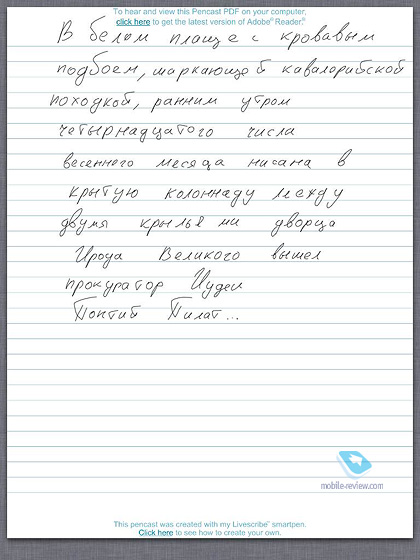 To hear and view this Pencast PDF on your computer,
click here to get the latest version of Adobe® Reader.®
В белом плаще с кровавым
подбоем, шаркающей кавалерийской
походкой, ранним утром
четырнадцатого числа
весеннего месяца нисана в
крытую колоннаду между
двумя крыльями дворца
Ирода Великого вышел
прокуратор Иудеи
Понтий Пилат...
mobile-review.com
This pencast was created with my Livescribe™ smartpen.
Click here to see how to create your own.